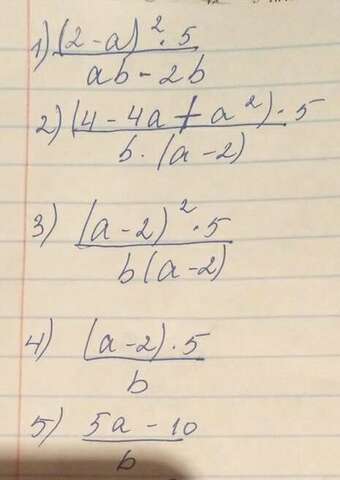 1) (2-a)²·5
ab-2b
2) (4-4a+a²)·5
b·(a-2)
3) (a-2)²·5
b(a-2)
4) (a-2)·5
b
5) 5a-10
b